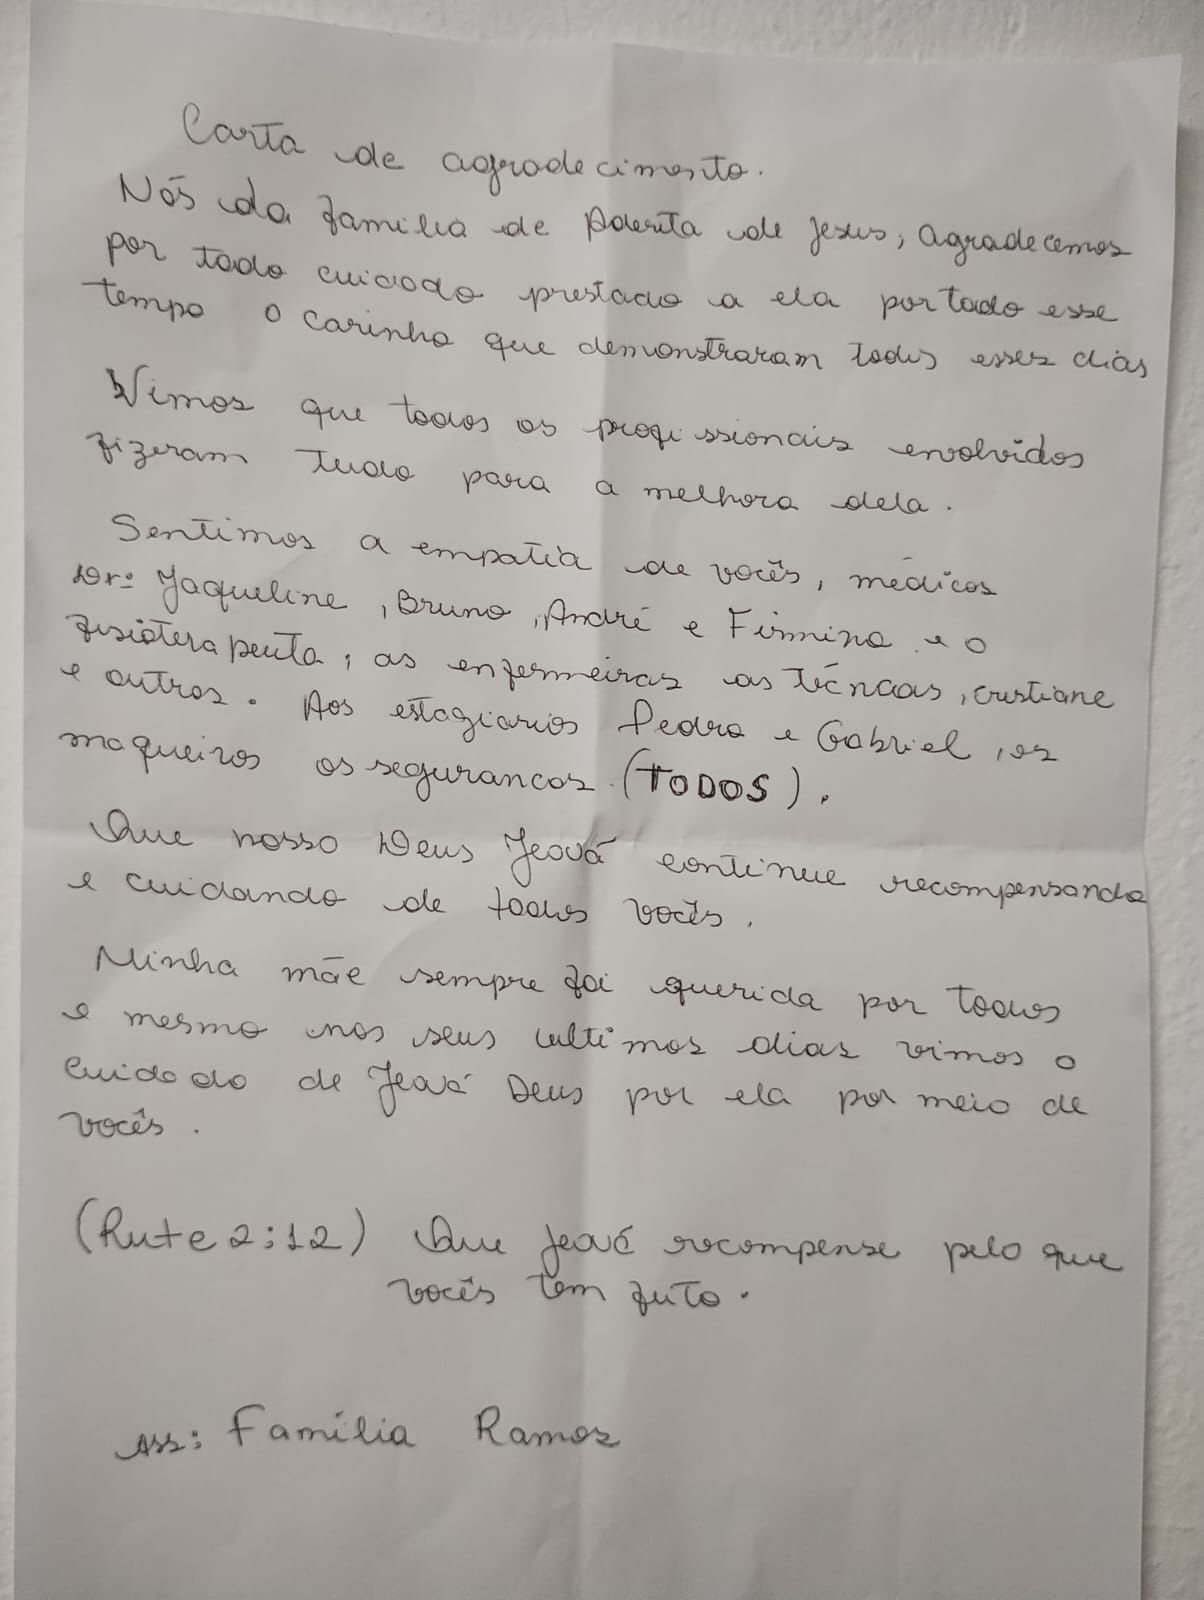 Carta de agradecimento.
Nós da familia de Aderita de Jesus, agradecemos
por todo cuidado prestado a ela por todo esse
tempo o carinho que demonstraram todos esses dias
Vimos que todos os profissionais envolvidos
fizeram tudo para a melhora dela.
Sentimos a empatia de vocês, médicos
Drª Jaqueline, Bruno, André e Firmino e o
fisioterapeuta, as enfermeiras as técnicas, Cristiane
e outros. Aos estagiarios Pedro e Gabriel, os
maqueiros os segurancas. (TODOS).
Que nosso Deus Jeová continue recompensando
e cuidando de todos vocês.
Minha mãe sempre foi querida por todos
e mesmo nos seus ultimos dias vimos o
cuidado de Jeová Deus por ela por meio de
vocês.
(Rute 2:12) Que Jeová recompense pelo que
vocês tem feito.
Ass: Família Ramos